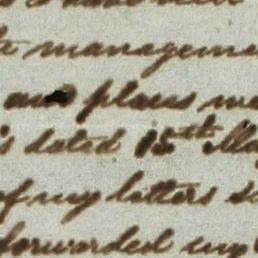 management
and plans we
is dated 15th May
of my letters
forwarded